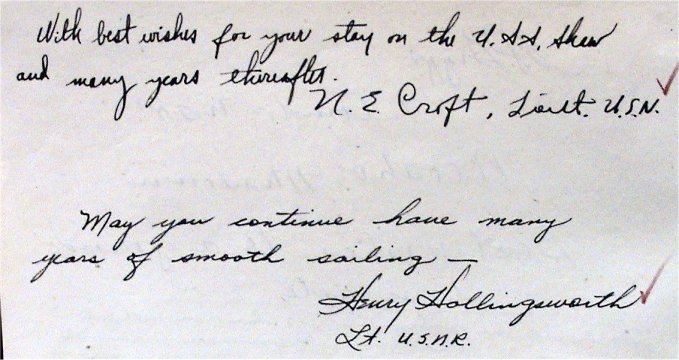 With best wishes for your stay on the U.S.S. Shaw
and many years thereafter.
N. E. Croft, Lieut. U.S.N.
May you continue have many
years of smooth sailing —
Henry Hollingsworth
Lt. U.S.N.R.